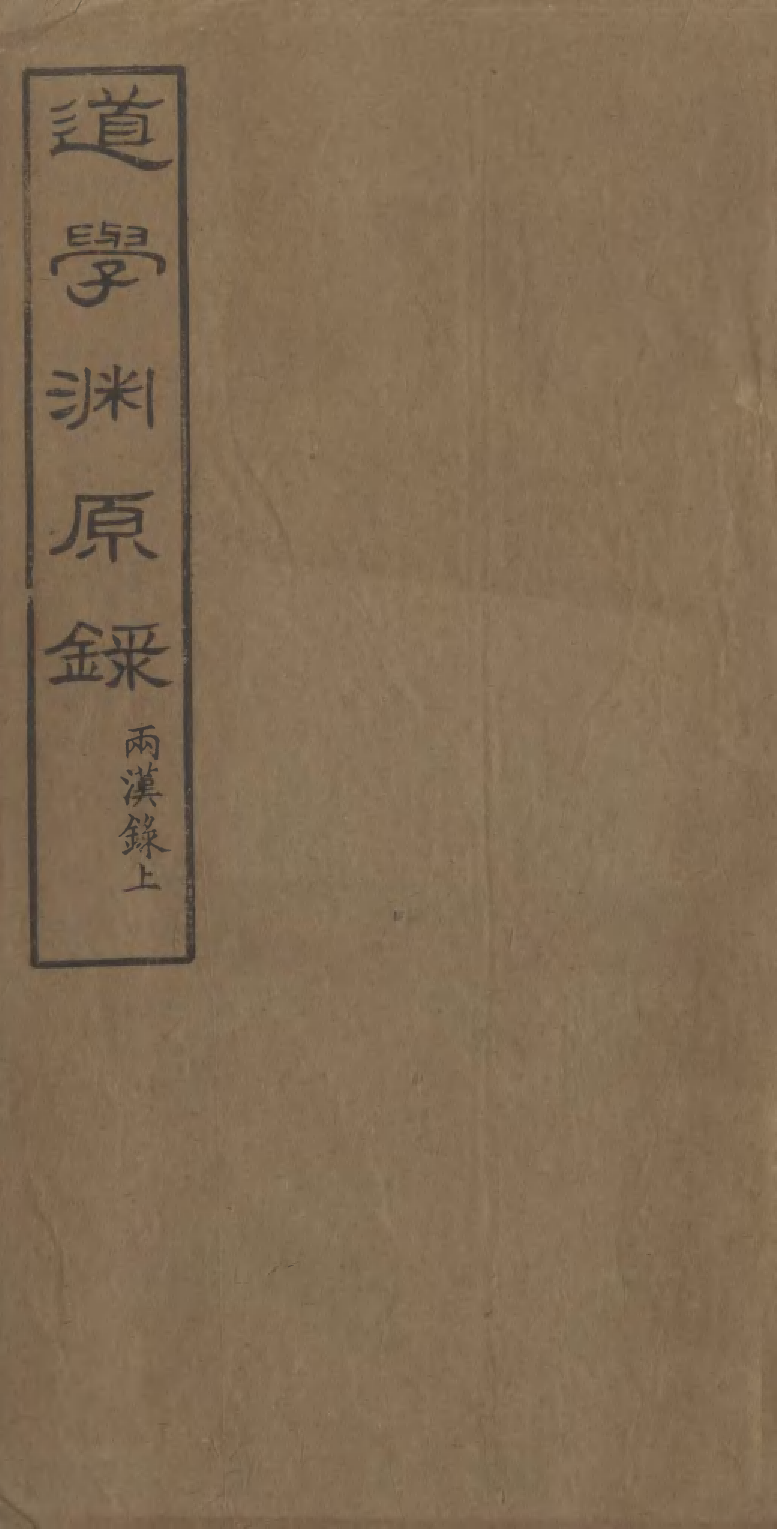 道學渊原錄
兩漢錄上